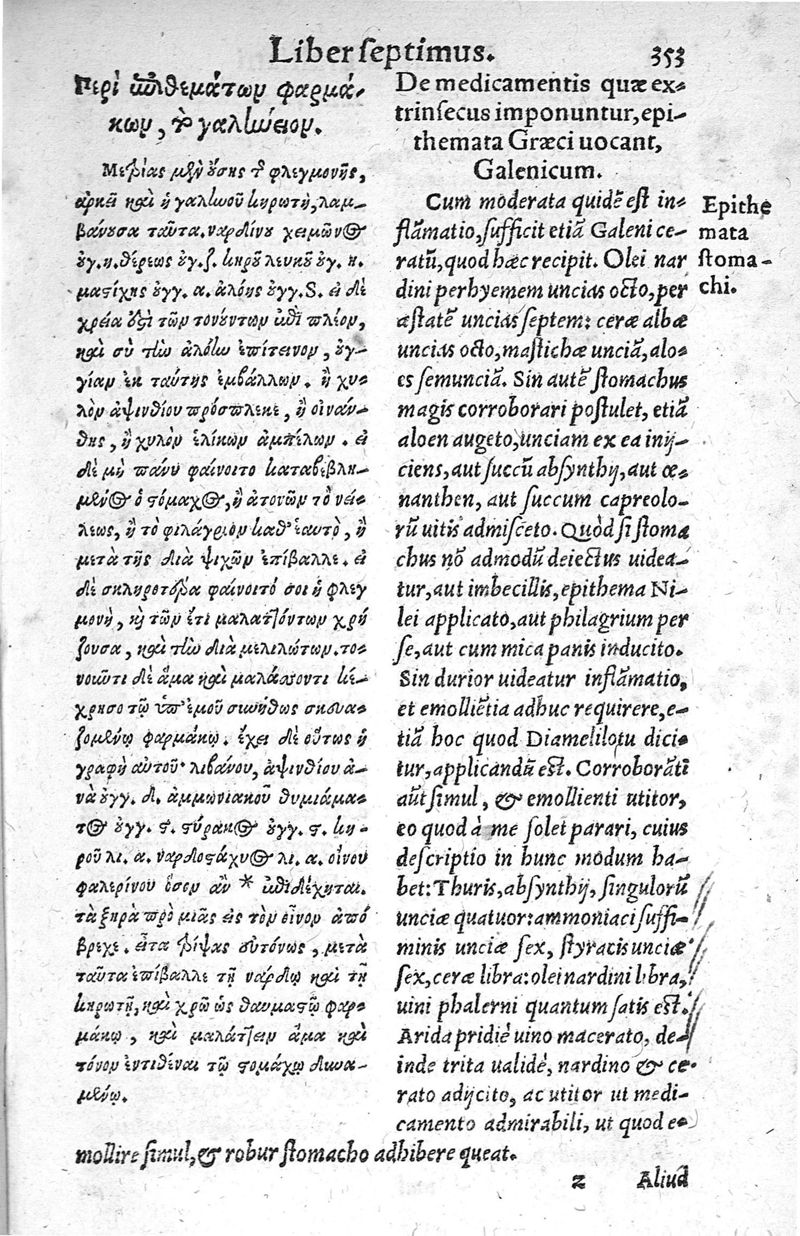 Liber septimus. 353
Περὶ ἐπιθεμάτων φαρμά-
κων, τὸ γαλήνειον.
Μετρίας μὲν οὔσης τῆς φλεγμονῆς,
ἀρκεῖ καὶ ἡ γαληνοῦ κηρωτὴ, λαμ-
βάνουσα ταῦτα. ναρδίνου χειμῶνος
ουγ. η. θέρεως ουγ. ζ. κηροῦ λευκοῦ ουγ. η.
μαστίχης ουγγ. α. ἀλόης ουγγ. S. εἰ δὲ
χρεία ἐστὶ τῶν τονούντων ἐπὶ πλέον,
καὶ σὺ τὴν ἀλόην ἐπίτεινον, ουγ-
γίαν ἐκ ταύτης ἐμβάλλων. ἢ χυ-
λὸν ἀψινθίου πρόσπλεκε, ἢ οἰνάν-
θης, ἢ χυλὸν ἑλίκων ἀμπέλων. εἰ
δὲ μὴ πάνυ φαίνοιτο καταβεβλη-
μένος ὁ στόμαχος, ἢ ἀτονῶν τὸ νεί-
λεως, ἢ τὸ φιλάγριον καθ' ἑαυτὸ, ἢ
μετὰ τῆς διὰ ψιχῶν ἐπίβαλλε. εἰ
δὲ σκληροτέρα φαίνοιτό σοι ἡ φλεγ
μονὴ, καὶ τῶν ἔτι μαλαττόντων χρή
ζουσα, καὶ τὴν διὰ μελιλώτων. το-
νοῦντι δὲ ἅμα καὶ μαλάσσοντι κέ-
χρησο τῷ ὑπ' ἐμοῦ συνήθως σκευα-
ζομένῳ φαρμάκῳ. ἔχει δὲ οὕτως ἡ
γραφὴ αὐτοῦ· λιβάνου, ἀψινθίου ἀ-
νὰ ουγγ. δ. ἀμμωνιακοῦ θυμιάμα-
τος ουγγ. ϛ. στύρακος ουγγ. ϛ. κη-
ροῦ λι. α. ναρδοστάχυος λι. α. οἴνου
φαλερίνου ὅσον ἂν * ἐπιδέχηται.
τὰ ξηρὰ πρὸ μιᾶς εἰς τὸν οἶνον ἀπό
βρεχε. εἶτα τρίψας εὐτόνως, μετὰ
ταῦτα ἐπίβαλλε τῇ νάρδῳ καὶ τῇ
κηρωτῇ, καὶ χρῶ ὡς θαυμαστῷ φαρ-
μάκῳ, καὶ μαλάττειν ἅμα καὶ
τόνον ἐντιθέναι τῷ στομάχῳ δυνα-
μένῳ.
De medicamentis quæ ex-
trinsecus imponuntur, epi-
themata Græci uocant,
Galenicum.
Cum moderata quidē est in-
flāmatio, sufficit etiā Galeni ce-
ratū, quod hæc recipit. Olei nar
dini per hyemem uncias octo, per
æstatē uncias septem: ceræ albæ
uncias octo, mastichæ unciā, alo-
es semunciā. Sin autē stomachus
magis corroborari postulet, etiā
aloen augeto, unciam ex ea inij-
ciens, aut succū absynthij, aut œ-
nanthen, aut succum capreolo-
rū uitis admisceto. Quòd si stoma
chus nō admodū deiectus uidea-
tur, aut imbecillis, epithema Ni-
lei applicato, aut philagrium per
se, aut cum mica panis inducito.
Sin durior uideatur inflāmatio,
et emolliētia adhuc requirere, e-
tiā hoc quod Diamelilotu dici-
tur, applicandū est. Corroborāti
aūt simul, & emollienti utitor,
eo quod à me solet parari, cuius
descriptio in hunc modum ha-
bet: Thuris, absynthij, singulorū
unciæ quatuor: ammoniaci suffi-
minis unciæ sex, styracis unciæ
sex, ceræ libra: olei nardini libra,
uini phalerni quantum satis est.
Arida pridiè uino macerato, de-
inde trita ualidè, nardino & ce-
rato adijcito, ac utitor ut medi-
camento admirabili, ut quod e-
mollire simul, & robur stomacho adhibere queat.
Epithe
mata
stoma-
chi.
z Aliud